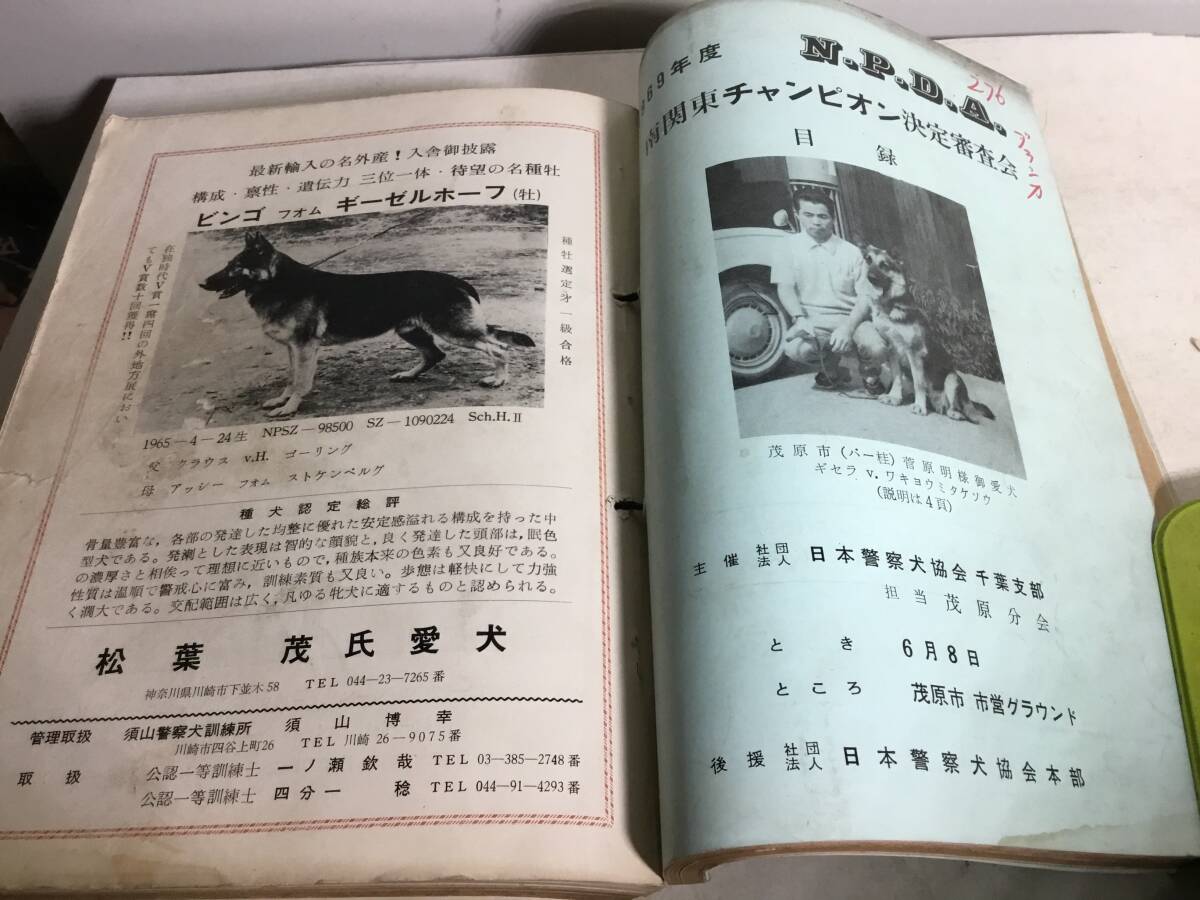 最新輸入の名外産!入舎御披露
構成・禀性・遺伝力 三位一体・待望の名種牡
ビンゴ フォム ギーゼルホーフ(牡)
種牡選定才一級合格
在独時代V賞一席四回の外地方展におい
てもV賞数十回獲得!!
1965—4—24生 NPSZ—98500 SZ—1090224 Sch.H.Ⅱ
父 クラウス v.H. ゴーリング
母 アッシー フォム ストケンベルグ
種犬認定総評
骨量豊富な,各部の発達した均整に優れた安定感溢れる構成を持った中
型犬である。発溂とした表現は智的な顔貌と,良く発達した頭部は,眠色
の濃厚さと相俟って理想に近いもので,種族本来の色素も又良好である。
性質は温順で警戒心に富み,訓練素質も又良い。歩態は軽快にして力強
く濶大である。交配範囲は広く,凡ゆる牝犬に適するものと認められる。
松葉 茂氏愛犬
神奈川県川崎市下並木58 TEL 044—23—7265番
管理取扱 須山警察犬訓練所 須山博幸
川崎市四谷上町26 TEL 川崎 26—9075番
取扱 公認一等訓練士 一ノ瀬欽哉 TEL 03—385—2748番
公認一等訓練士 四分一 稔 TEL 044—91—4293番
969年度 N.P.D.A.
276
南関東チャンピオン決定審査会
目録
茂原市(バー桂)菅原明様御愛犬
ギセラ v.ワキヨウミタケソウ
(説明は4頁)
主催 社団法人 日本警察犬協会千葉支部
担当茂原分会
とき 6月8日
ところ 茂原市 市営グラウンド
後援 社団法人 日本警察犬協会本部